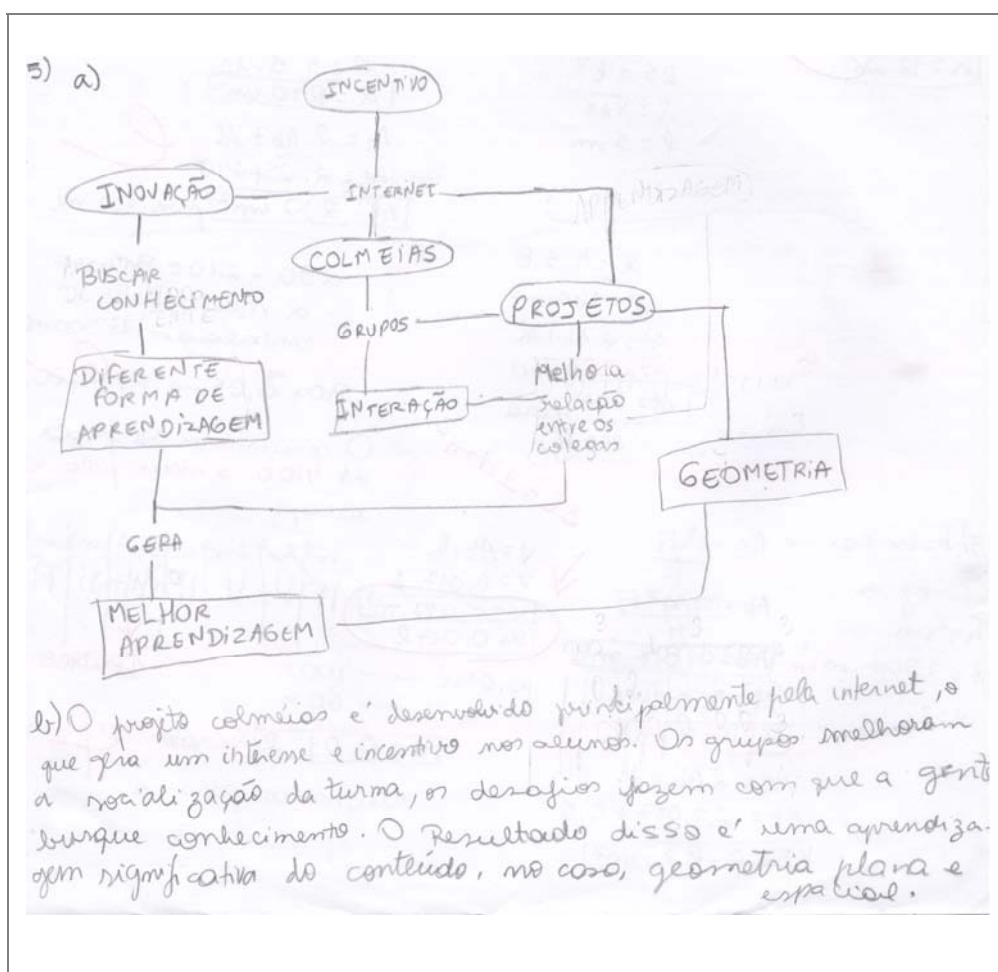 5) a)
INCENTIVO
INOVAÇÃO
INTERNET
COLMEIAS
BUSCAR
CONHECIMENTO
GRUPOS
PROJETOS
DIFERENTE
FORMA DE
APRENDIZAGEM
INTERAÇÃO
Melhora
relação
entre os
colegas
GEOMETRIA
GERA
MELHOR
APRENDIZAGEM
b) O projeto colméias é desenvolvido principalmente pela internet, o
que gera um interesse e incentivo nos alunos. Os grupos melhoram
a socialização da turma, os desafios fazem com que a gente
busque conhecimento. O Resultado disso é uma aprendiza-
gem significativa do conteúdo, no caso, geometria plana e
espacial.